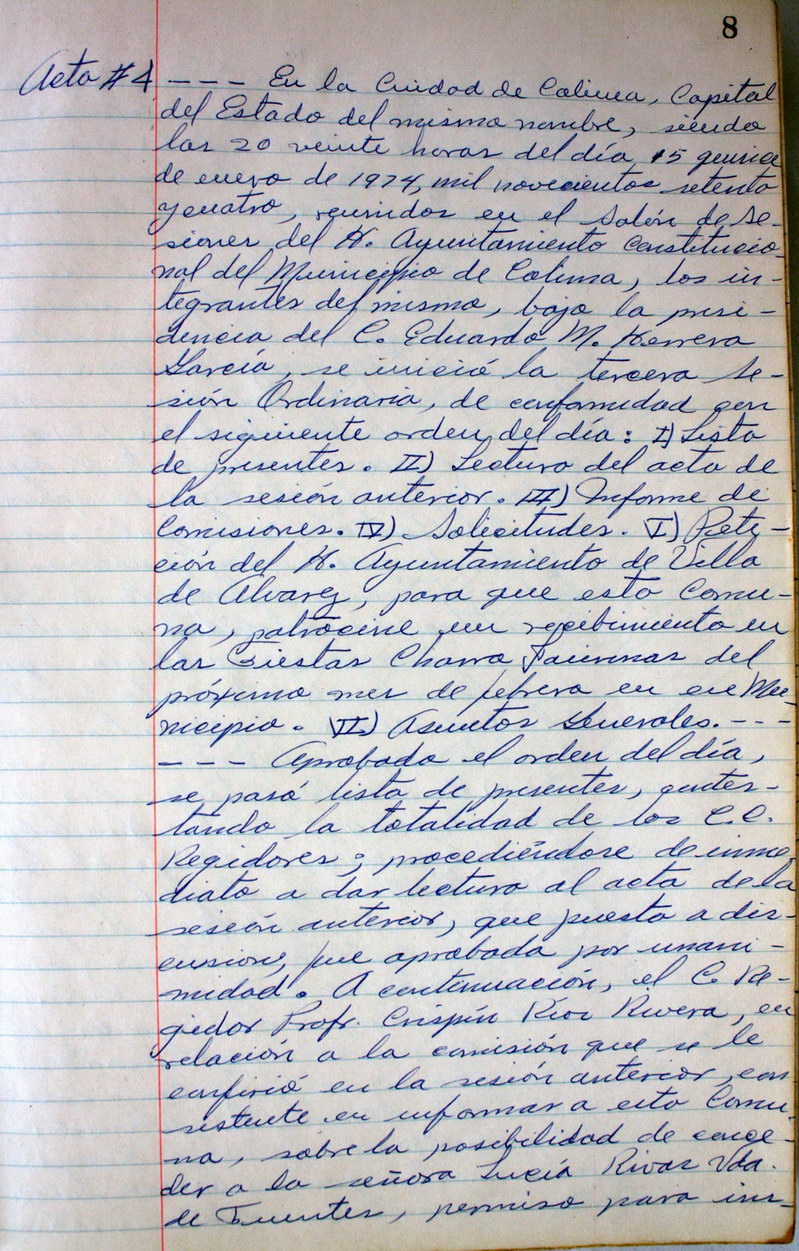 8
Acta #4 --- En la Ciudad de Colima, Capital
del Estado del mismo nombre, siendo
las 20 veinte horas del día 15 quince
de enero de 1974, mil novecientos setenta
y cuatro, reunidos en el Salón de Se-
siones del H. Ayuntamiento Constitucio-
nal del Municipio de Colima, los in-
tegrantes del mismo, bajo la presi-
dencia del C. Eduardo M. Herrera
García, se inició la tercera Se-
sión Ordinaria, de conformidad con
el siguiente orden del día: I) Lista
de presentes. II) Lectura del acta de
la sesión anterior. III) Informe de
Comisiones. IV) Solicitudes. V) Peti-
ción del H. Ayuntamiento de Villa
de Alvarez, para que esta Comu-
na, patrocine un recibimiento en
las Fiestas Charro Taurinas del
próximo mes de febrero en ese Mu-
nicipio. VI) Asuntos Generales. ---
--- Aprobada el orden del día,
se pasó lista de presentes, contes-
tando la totalidad de los C.C.
Regidores; procediéndose de inme
diato a dar lectura al acta de la
sesión anterior, que puesta a dis-
cusión, fue aprobada por unani-
midad. A continuación, el C. Re-
gidor Profr. Crispín Ríos Rivera, en
relación a la comisión que se le
confirió en la sesión anterior, con
sistente en informar a esta Comu-
na, sobre la posibilidad de conce-
der a la señora Lucía Rivas Vda.
de Fuentes, permiso para ins-